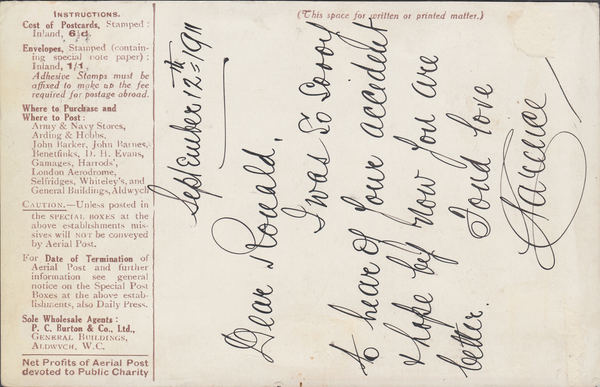 INSTRUCTIONS.
Cost of Postcards, Stamped:
Inland, 6½d.
Envelopes, Stamped (contain-
ing special note paper):
Inland, 1/1.
Adhesive Stamps must be
affixed to make up the fee
required for postage abroad.
Where to Purchase and
Where to Post:
Army & Navy Stores,
Arding & Hobbs,
John Barker, John Barnes,
Benetfinks, D. H. Evans,
Gamages, Harrods',
London Aerodrome,
Selfridges, Whiteley's, and
General Buildings, Aldwych
CAUTION.—Unless posted in
the SPECIAL BOXES at the
above establishments mis-
sives will NOT be conveyed
by Aerial Post.
For Date of Termination of
Aerial Post and further
information see general
notice on the Special Post
Boxes at the above estab-
lishments, also Daily Press.
Sole Wholesale Agents:
P. C. Burton & Co., Ltd.,
GENERAL BUILDINGS,
ALDWYCH, W.C.
Net Profits of Aerial Post
devoted to Public Charity
(This space for written or printed matter.)
September 12th 1911
Dear Ronald,
I was so sorry
to hear of your accident
& hope by now you are
better.
Fond love